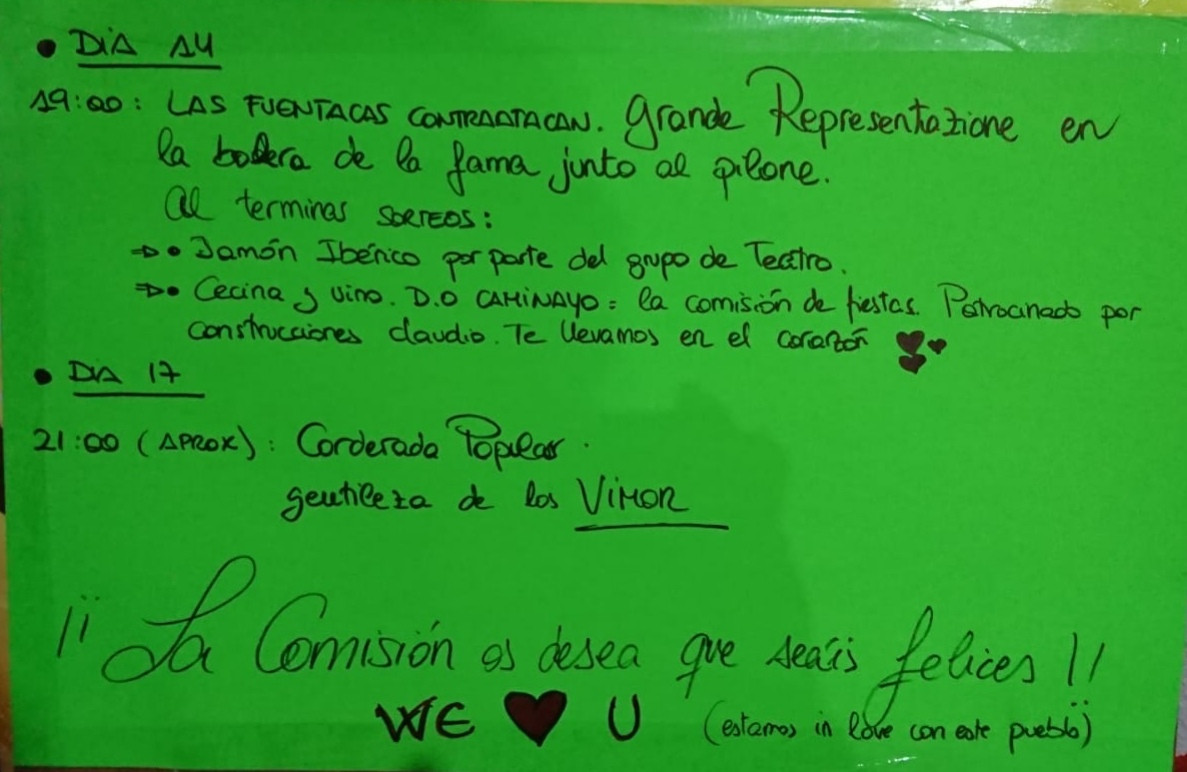 • DÍA 14
19:00: LAS FUENTACAS CONTRAATACAN. Grande Representazione en
la bolera de la fama junto al pilone.
Al terminar SORTEOS:
⇒• Jamón Ibérico por parte del grupo de Teatro.
⇒• Cecina y vino. D.O CAMINAYO = la comisión de fiestas. Patrocinado por
construcciones claudio. Te llevamos en el corazón ♥♥♥
• DÍA 17
21:00 (APROX): Corderada Popular.
gentileza de los VIMOR
¡¡ La Comisión os desea que seáis felices !!
WE ♥ U (estamos in love con este pueblo)